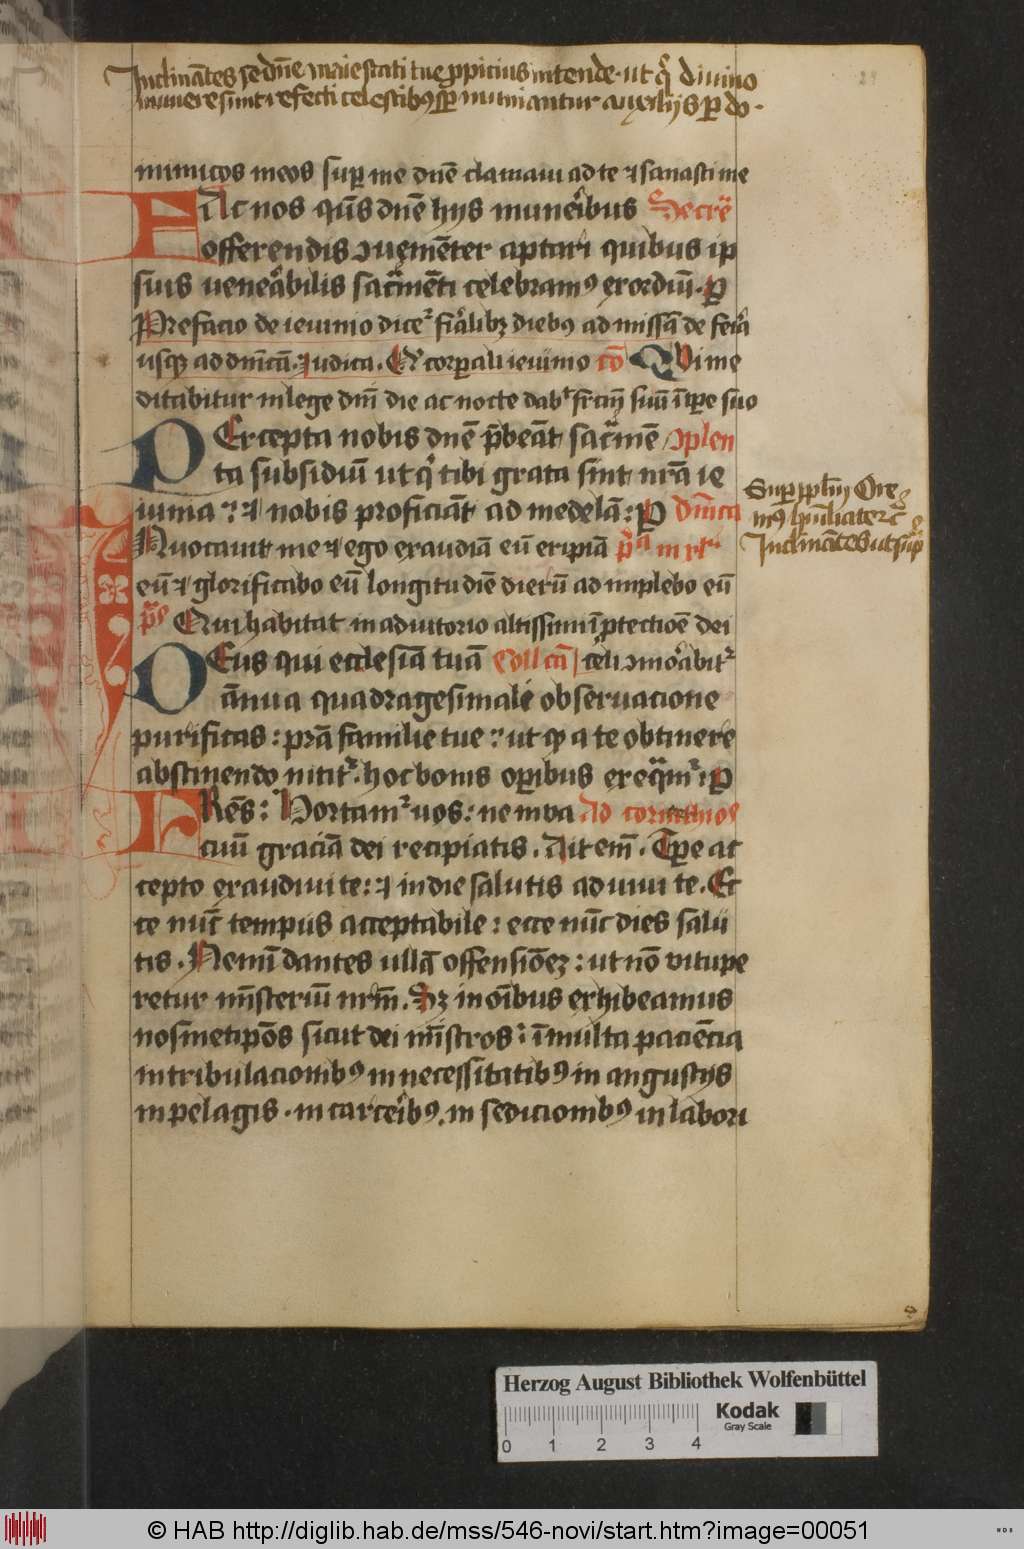 Inclinātes se dn̄e maiestati tue ꝓpicius intende · ut qͥ diuino
munere sūnt refecti celestibꝰ sꝑ nutriantur auxilijs ꝑ do ·
inimicos meos suꝑ me dn̄e clamaui ad te ⁊ sanasti me
FAc nos qs̄ dn̄e hijs munerībus Secret̄
offerendis ↄueniēter aptari quibus ip
sius venerābilis sacrāmēti celebramꝰ exordiū · ꝑ
Prefacio de ieiunio dicet᷑ fīalibꝫ diebꝰ ad missā de feīa
usqꝫ ad dn̄icā · Judica · Qͥ corꝑali ieiunio cō QVi me
ditabitur in lege dn̄i die ac nocte dabit fr̄cm̄ suū ī tꝑe suo
PErcepta nobis dn̄e p̄beāt sacrāmē ↄplen
ta subsidiū ut qͥ tibi grata sint nr̄a ie
iunia : ⁊ nobis proficiāt ad medelā : ꝑ dn̄ica
INuocauit me ⁊ ego exaudiā eū eripiā pͥa in xlͣ
eū ⁊ glorificabo eū longitudīe dierū adimplebo eū
p̄s Qui habitat in adiutorio altissimi ī ꝓtectiōe dei
DEus qui ecclesiā tuā Coll̄cā celi ↄmorābit᷑
ānua quadragesimali obseruacione
purificas : pr̄a familie tue : ut qꝫ a te obtinere
abstinendo nitit᷑ · hoc bonis oꝑibus exeq̄m᷑ · ꝑ
FRēs : Hortam᷑ uos : ne in va Ad corinthios
cuū graciā dei recipiatis . Ait em̄ . Tꝑe ac
cepto exaudiui te : ⁊ in die salutis adiuui te . Ec
ce nūc tempus acceptabile : ecce nūc dies salu
tis . Nemī dantes ullā offensiōeꝫ : ut nō vitupe
retur mīsteriū nr̄m . Sꝫ in oībus exhibeamus
nosmetip̄os sicut dei mīstros : ī multa paciēcia
in tribulacionibꝰ in necessitatibꝰ in angustijs
in pelagis . in carcerībꝰ . in sedicionibꝰ in labori
Suꝑ pplm̄ Ore
mꝰ hūiliate rc̄
Inclinātes ut sup̄
Herzog August Bibliothek Wolfenbüttel
0 1 2 3 4
Kodak
Gray Scale
© HAB http://diglib.hab.de/mss/546-novi/start.htm?image=00051